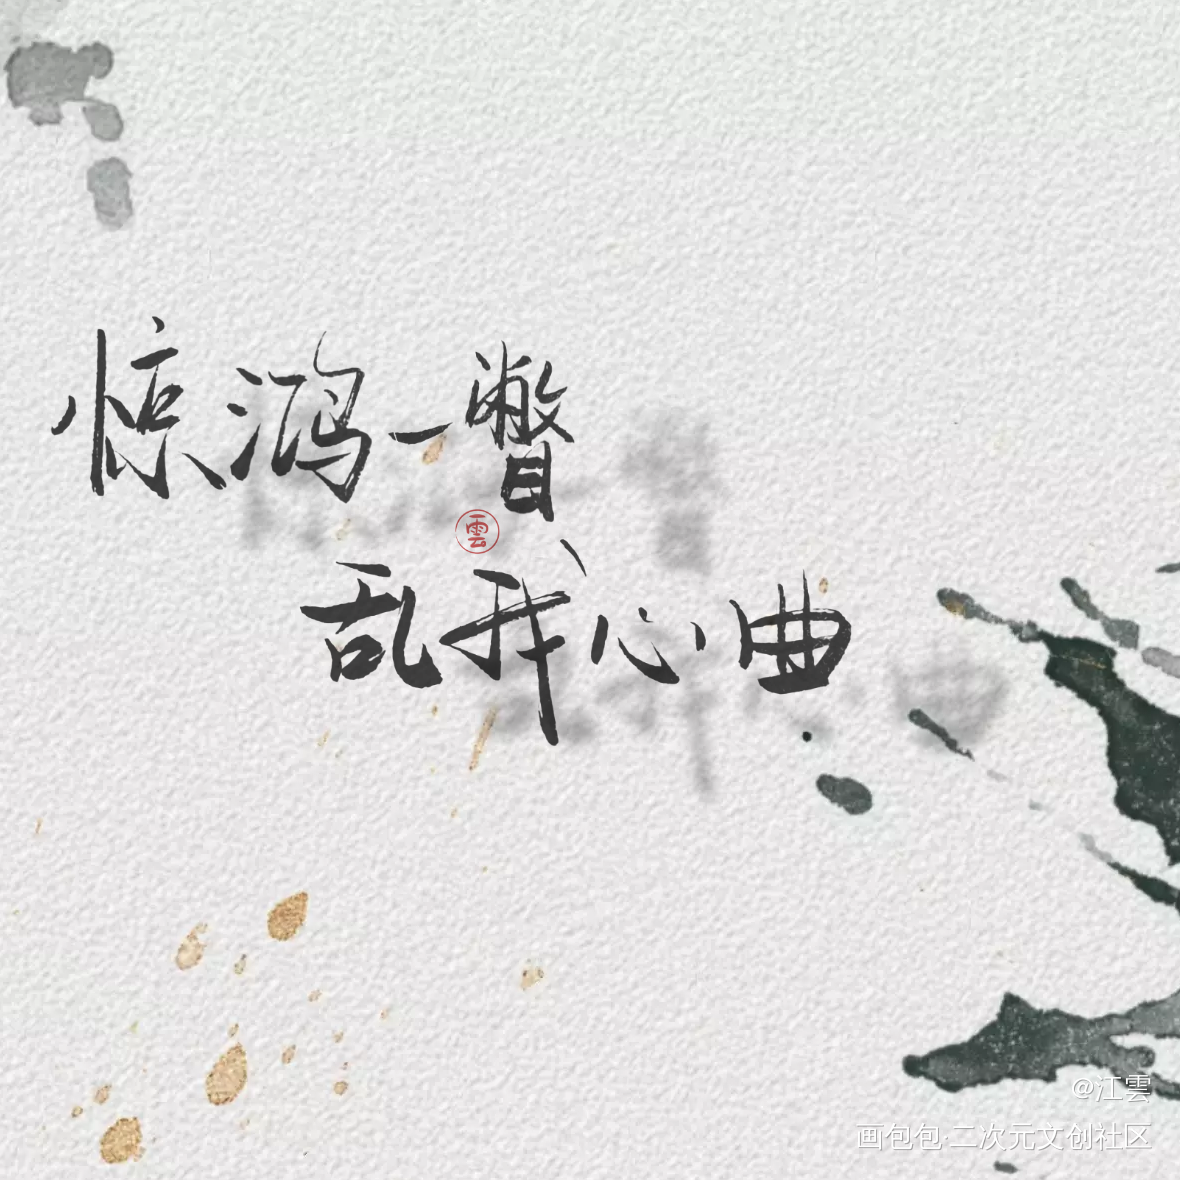 惊鸿一瞥
雲
乱我心曲
@江雲
画包包·二次元文创社区